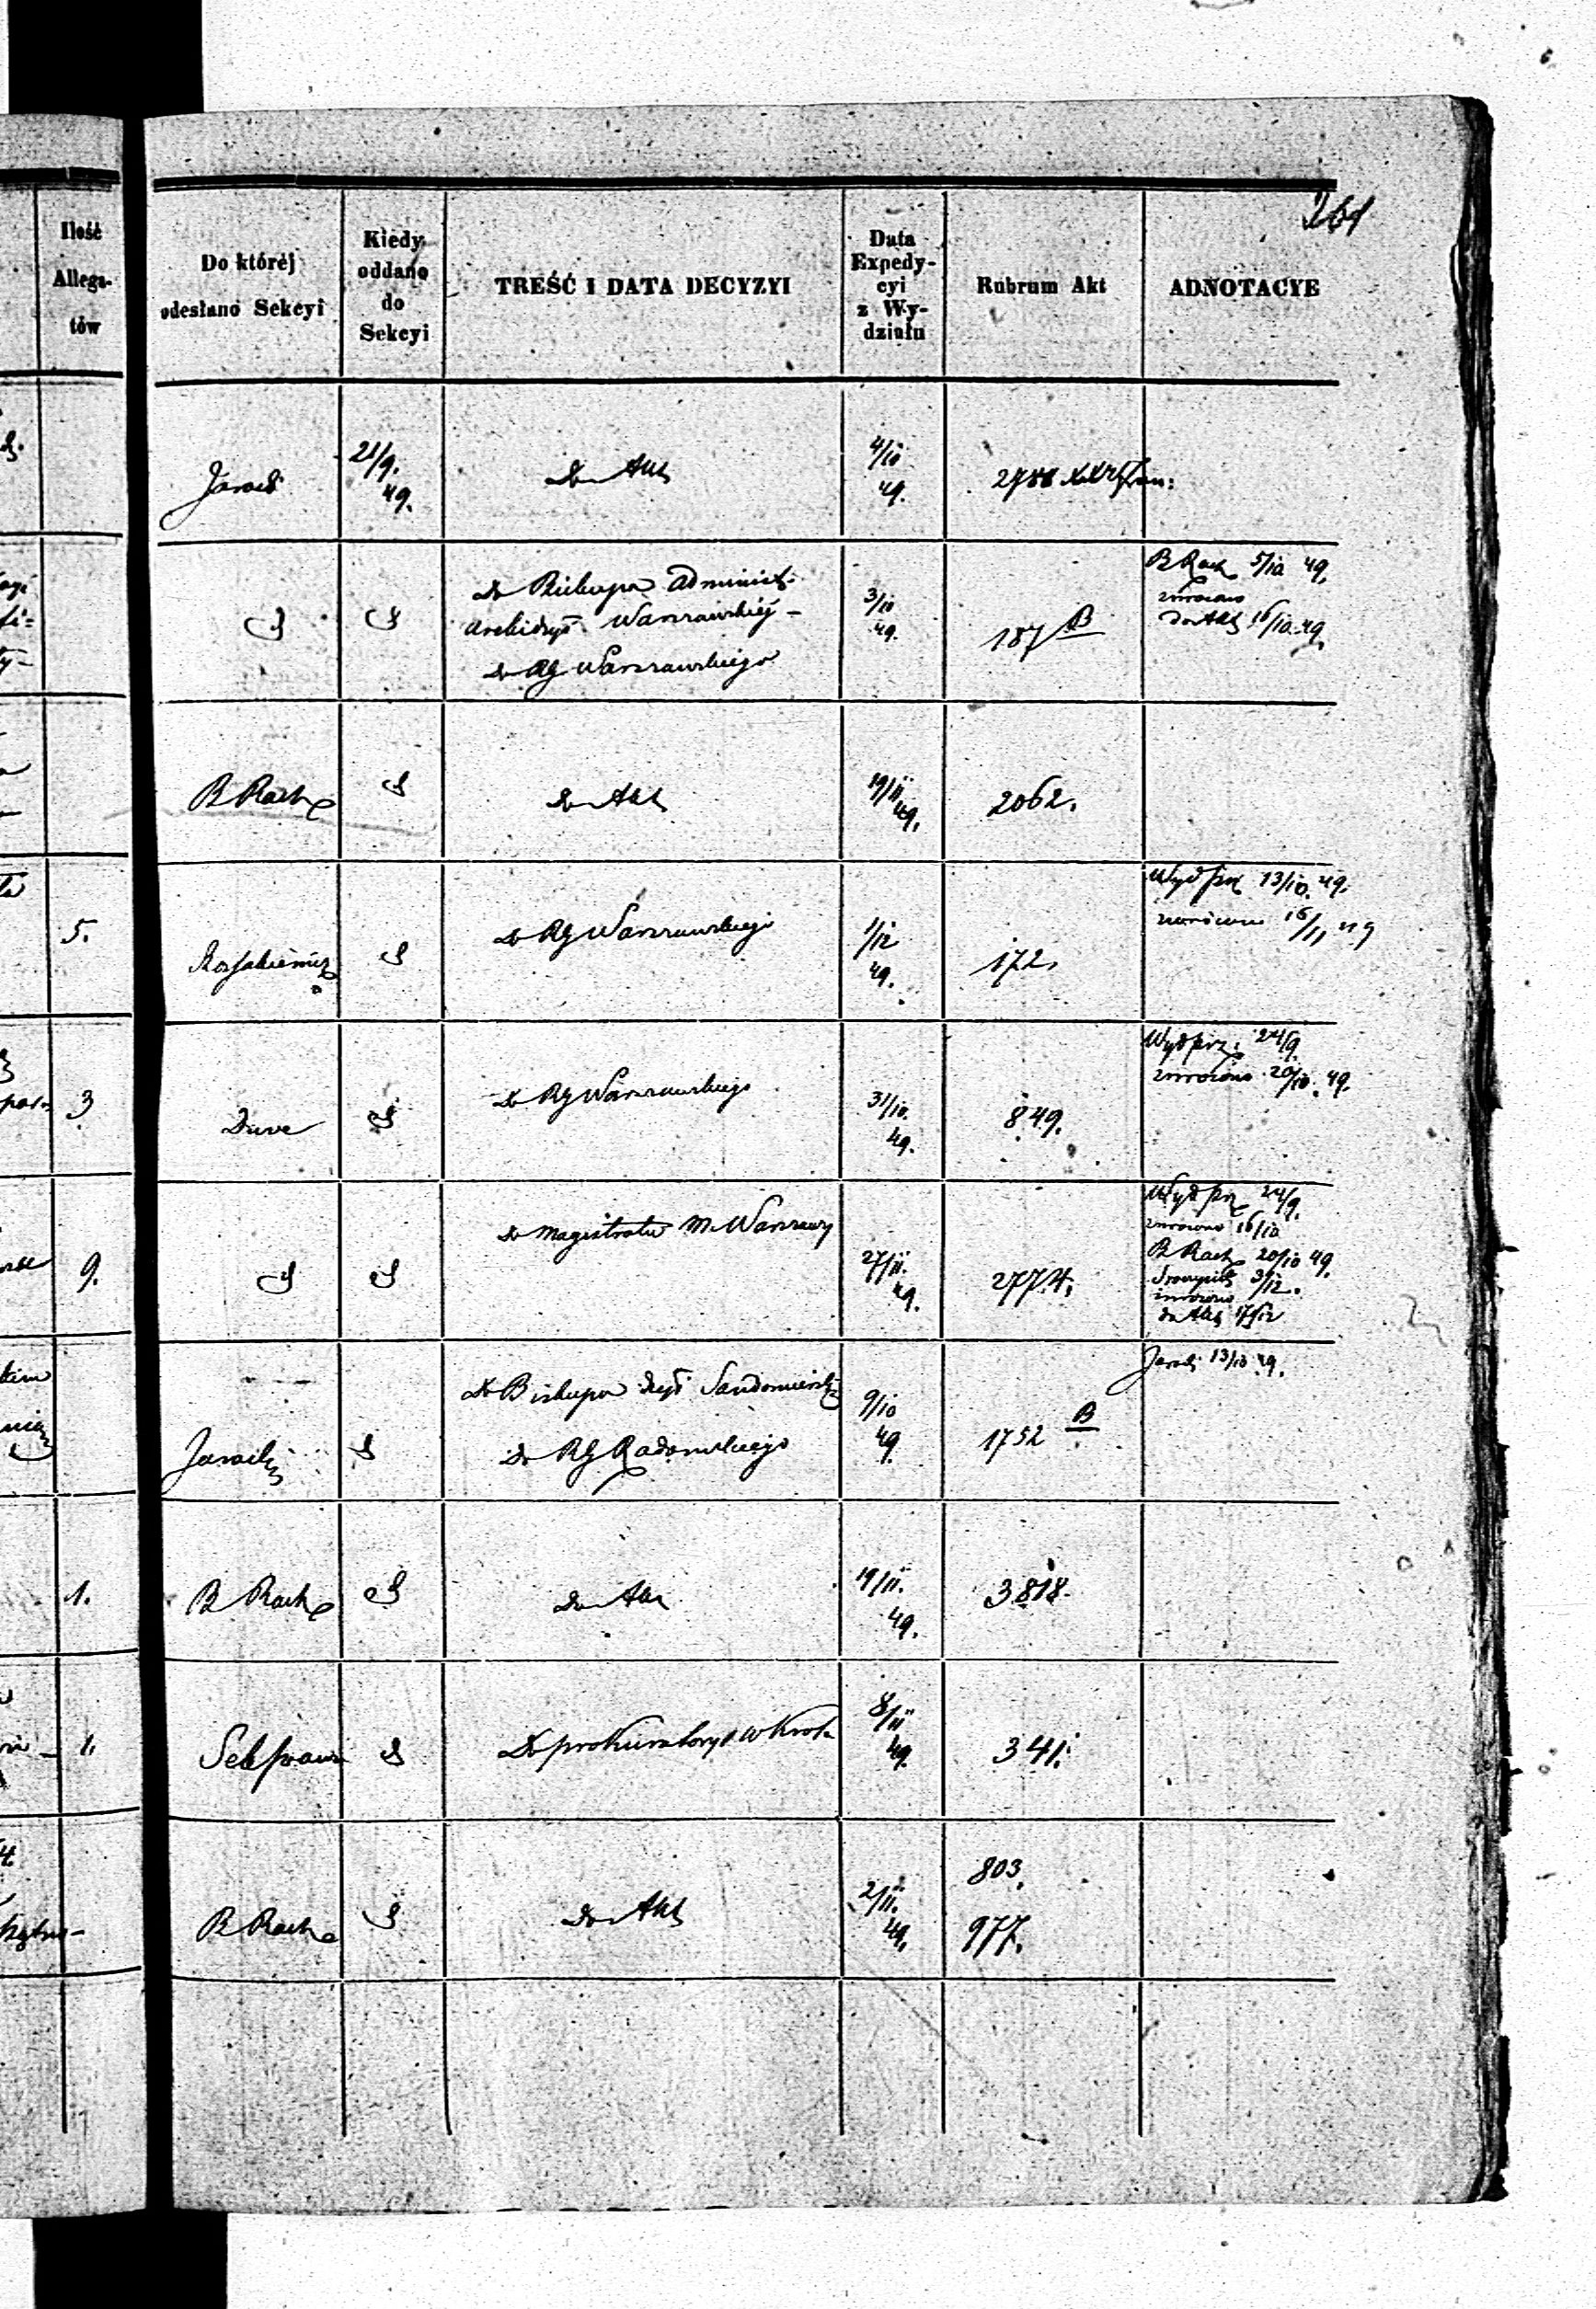 261
Ilość
Allega-
tów
Do której
odesłano Sekcyi
Kiedy
oddano
do
Sekcyi
TREŚĆ I DATA DECYZYI
Data
Expedy-
cyi
z Wy-
działu
Rubrum Akt
ADNOTACYE
21/9.
49.
Do Akt
4/10
49.
Do Biskupa Administ.
Archidyec. Warszawskiéj -
Do RG Warszawskiego
3/10
49.
187 B
B Rach 5/10 49.
zwrócono
Do Akt 16/10 49
B Rach
Do Akt
19/11
49.
2062.
5.
Do RG Warszawskiego
1/12
49.
172.
Wyd prz 13/10. 49.
zwrócono 16/11 49
3
Do RG Warszawskiego
31/10.
49.
849.
Wyd prz. 24/9.
zwrócono 20/10. 49.
9.
Do Magistratu M. Warszawy
27/11.
49.
2774.
Wyd prz 24/9.
zwrócono 16/10
B Rach 20/10 49.
3/12.
zwrócono
Do Akt 17/12
Do Biskupa Dyec Sandomiersk
Do RG Radomskiego
9/10
49
1752 B
13/10 49.
1.
B Rach
Do Akt
19/11.
49.
3818.
1.
Do prokuratoryi w Król.
8/11
49.
341.
B Rach
Do Akt
2/11.
49.
803.
977.